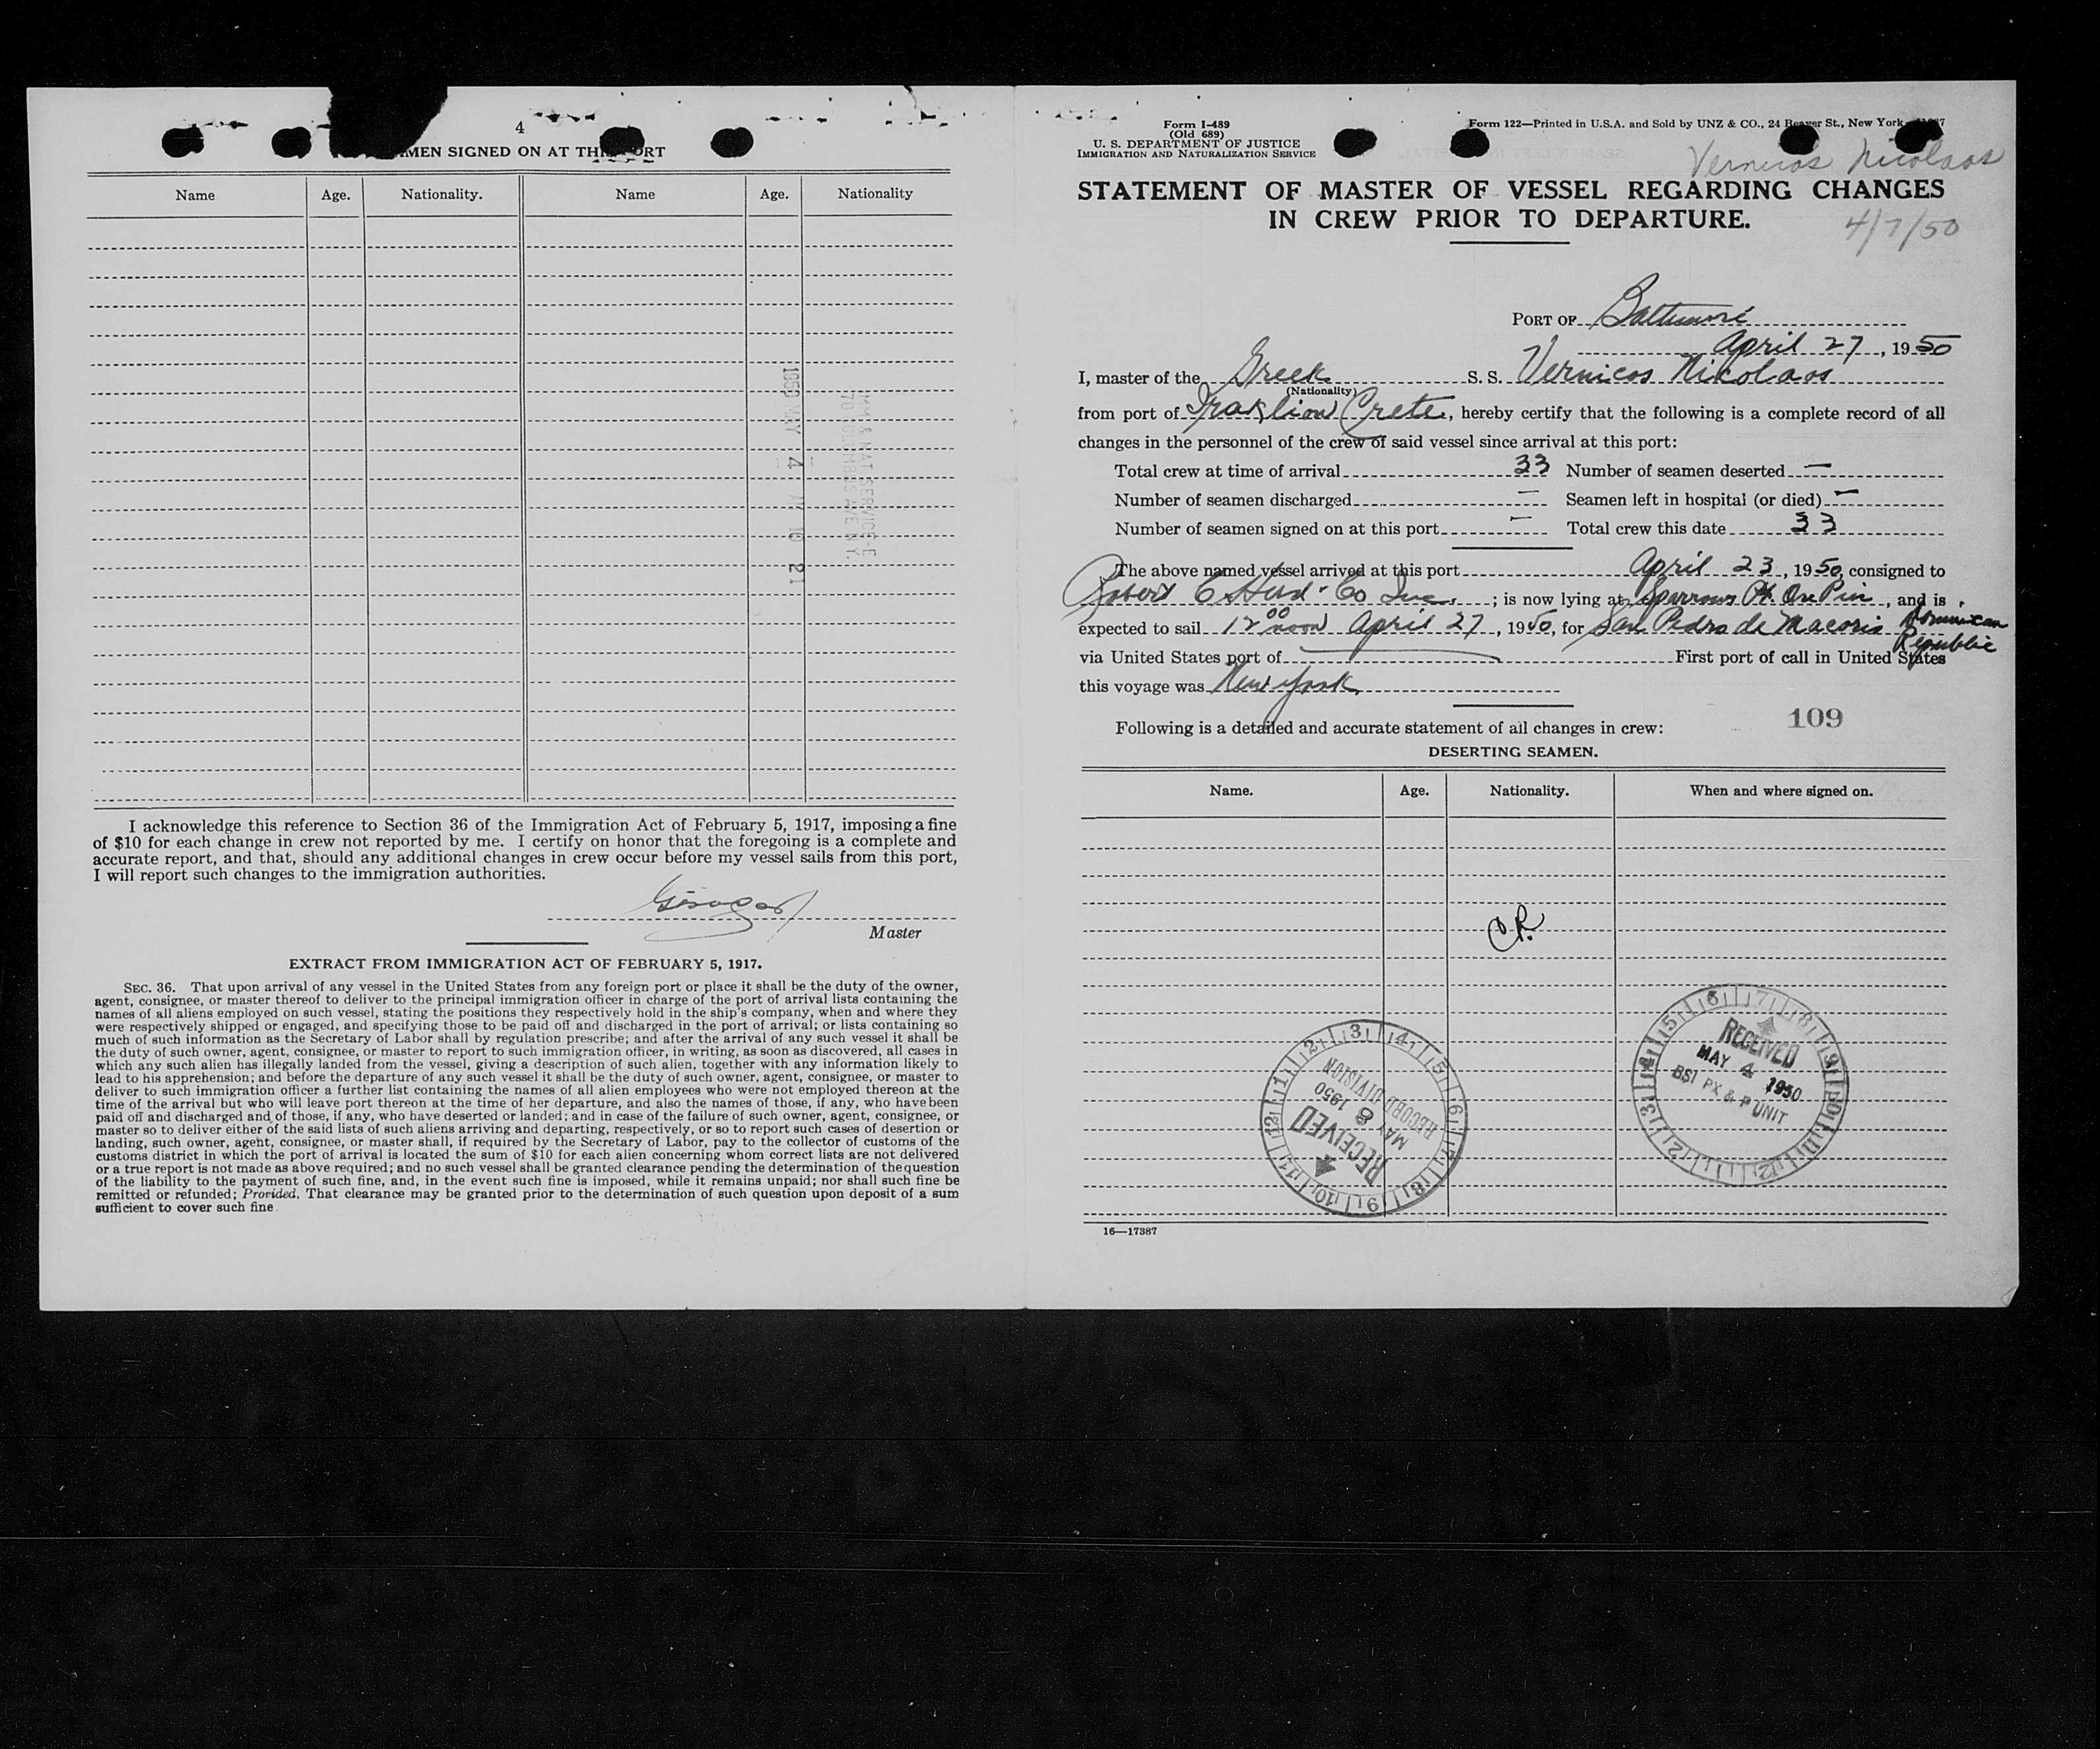 4
SEAMEN SIGNED ON AT THIS PORT
Name Age. Nationality. Name Age. Nationality
1950 MAY 4 AM 10 21
IMM & NAT SERVICE-E
70 COLUMBUS AVE N.Y.
I acknowledge this reference to Section 36 of the Immigration Act of February 5, 1917, imposing a fine
of $10 for each change in crew not reported by me. I certify on honor that the foregoing is a complete and
accurate report, and that, should any additional changes in crew occur before my vessel sails from this port,
I will report such changes to the immigration authorities.
Master
EXTRACT FROM IMMIGRATION ACT OF FEBRUARY 5, 1917.
SEC. 36. That upon arrival of any vessel in the United States from any foreign port or place it shall be the duty of the owner,
agent, consignee, or master thereof to deliver to the principal immigration officer in charge of the port of arrival lists containing the
names of all aliens employed on such vessel, stating the positions they respectively hold in the ship's company, when and where they
were respectively shipped or engaged, and specifying those to be paid off and discharged in the port of arrival; or lists containing so
much of such information as the Secretary of Labor shall by regulation prescribe; and after the arrival of any such vessel it shall be
the duty of such owner, agent, consignee, or master to report to such immigration officer, in writing, as soon as discovered, all cases in
which any such alien has illegally landed from the vessel, giving a description of such alien, together with any information likely to
lead to his apprehension; and before the departure of any such vessel it shall be the duty of such owner, agent, consignee, or master to
deliver to such immigration officer a further list containing the names of all alien employees who were not employed thereon at the
time of the arrival but who will leave port thereon at the time of her departure, and also the names of those, if any, who have been
paid off and discharged and of those, if any, who have deserted or landed; and in case of the failure of such owner, agent, consignee, or
master so to deliver either of the said lists of such aliens arriving and departing, respectively, or so to report such cases of desertion or
landing, such owner, agent, consignee, or master shall, if required by the Secretary of Labor, pay to the collector of customs of the
customs district in which the port of arrival is located the sum of $10 for each alien concerning whom correct lists are not delivered
or a true report is not made as above required; and no such vessel shall be granted clearance pending the determination of the question
of the liability to the payment of such fine, and, in the event such fine is imposed, while it remains unpaid; nor shall such fine be
remitted or refunded; Provided, That clearance may be granted prior to the determination of such question upon deposit of a sum
sufficient to cover such fine.
Form I-489
(Old 689)
U. S. DEPARTMENT OF JUSTICE
IMMIGRATION AND NATURALIZATION SERVICE
Form 122—Printed in U.S.A. and Sold by UNZ & CO., 24 Beaver St., New York
Vernicos Nicolaos
STATEMENT OF MASTER OF VESSEL REGARDING CHANGES
IN CREW PRIOR TO DEPARTURE.
4/7/50
PORT OF Baltimore
April 27, 1950
I, master of the Greek S. S. Vernicos Nikolaos
(Nationality)
from port of Iraklion Crete, hereby certify that the following is a complete record of all
changes in the personnel of the crew of said vessel since arrival at this port:
Total crew at time of arrival 33 Number of seamen deserted —
Number of seamen discharged — Seamen left in hospital (or died) —
Number of seamen signed on at this port — Total crew this date 33
The above named vessel arrived at this port April 23, 1950, consigned to
Robert C Herd & Co Inc. ; is now lying at Sparrows Pt. Ore Pier, and is
expected to sail 12 00 noon April 27, 1950, for San Pedro de Macoris Dominican Republic
via United States port of — First port of call in United States
this voyage was New York
Following is a detailed and accurate statement of all changes in crew:
109
DESERTING SEAMEN.
Name. Age. Nationality. When and where signed on.
CR.
RECEIVED
MAY 8 1950
RECORD DIVISION
RECEIVED
MAY 4 1950
BSI PX & P UNIT
16—17387